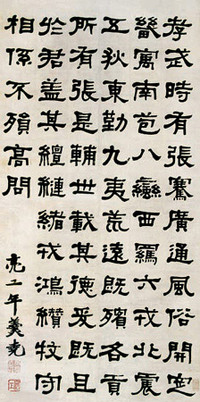 孝武時有張騫廣通風俗開定
畿寓南苞八蠻西羈六戎北震
五狄東勤九夷荒遠既殯各貢
所有張是輔世載其德爰既且
於君蓋其繵縺緒戎鴻纘牧守
相係不殞高問
二年